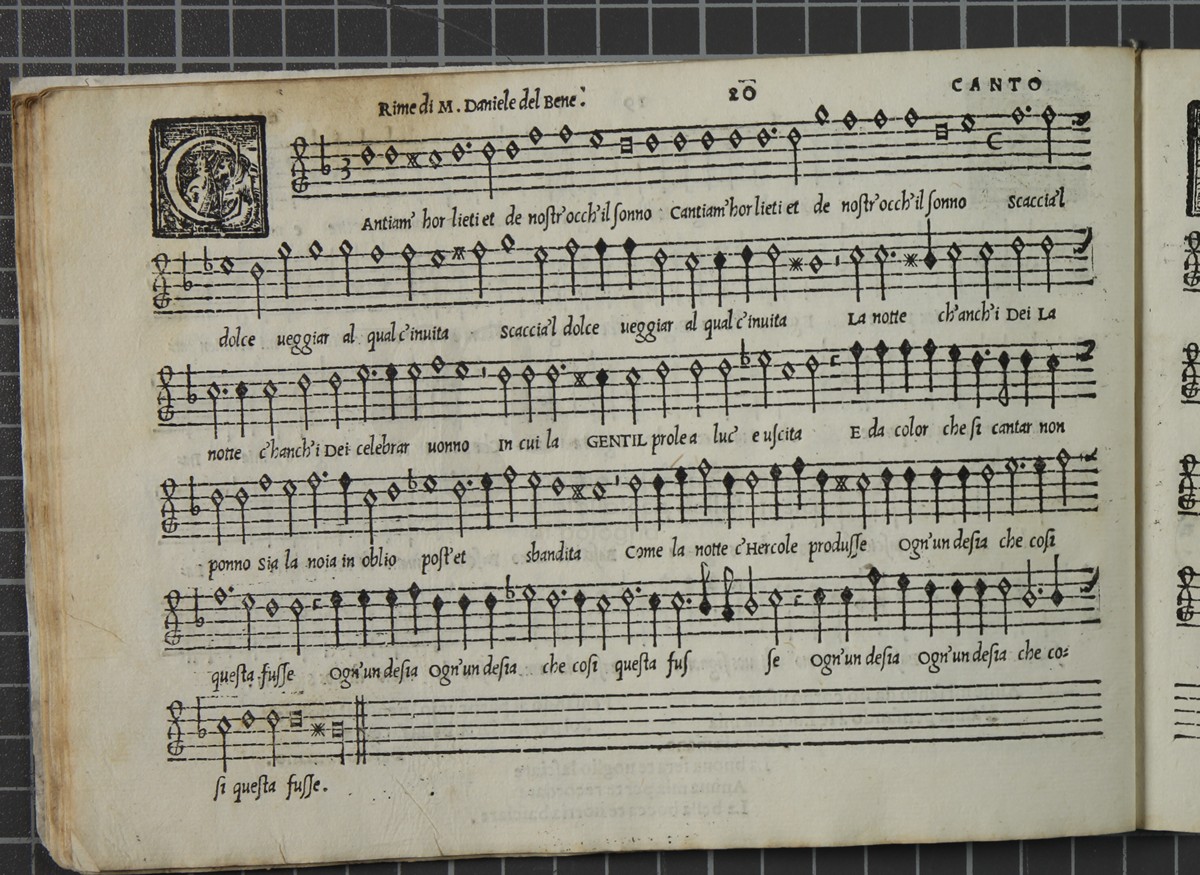 Rime di M. Daniele del Bene. 20 CANTO
CAntiam' hor lieti et de nostr'occh'il sonno Cantiam'hor lieti et de nostr'occh'il sonno Scaccia'l
dolce ueggiar al qual c'inuita Scaccia'l dolce ueggiar al qual c'inuita La notte ch'anch'i Dei La
notte c'hanch'i Dei celebrar uonno In cui la GENTIL prole a luc' e uscita E da color che si cantar non
ponno Sia la noia in oblio post'et sbandita Come la notte c'Hercole produsse Ogn'un desia che cosi
questa fusse Ogn'un desia Ogn'un desia che cosi questa fus se Ogn'un desia Ogn'un desia che co=
si questa fusse.